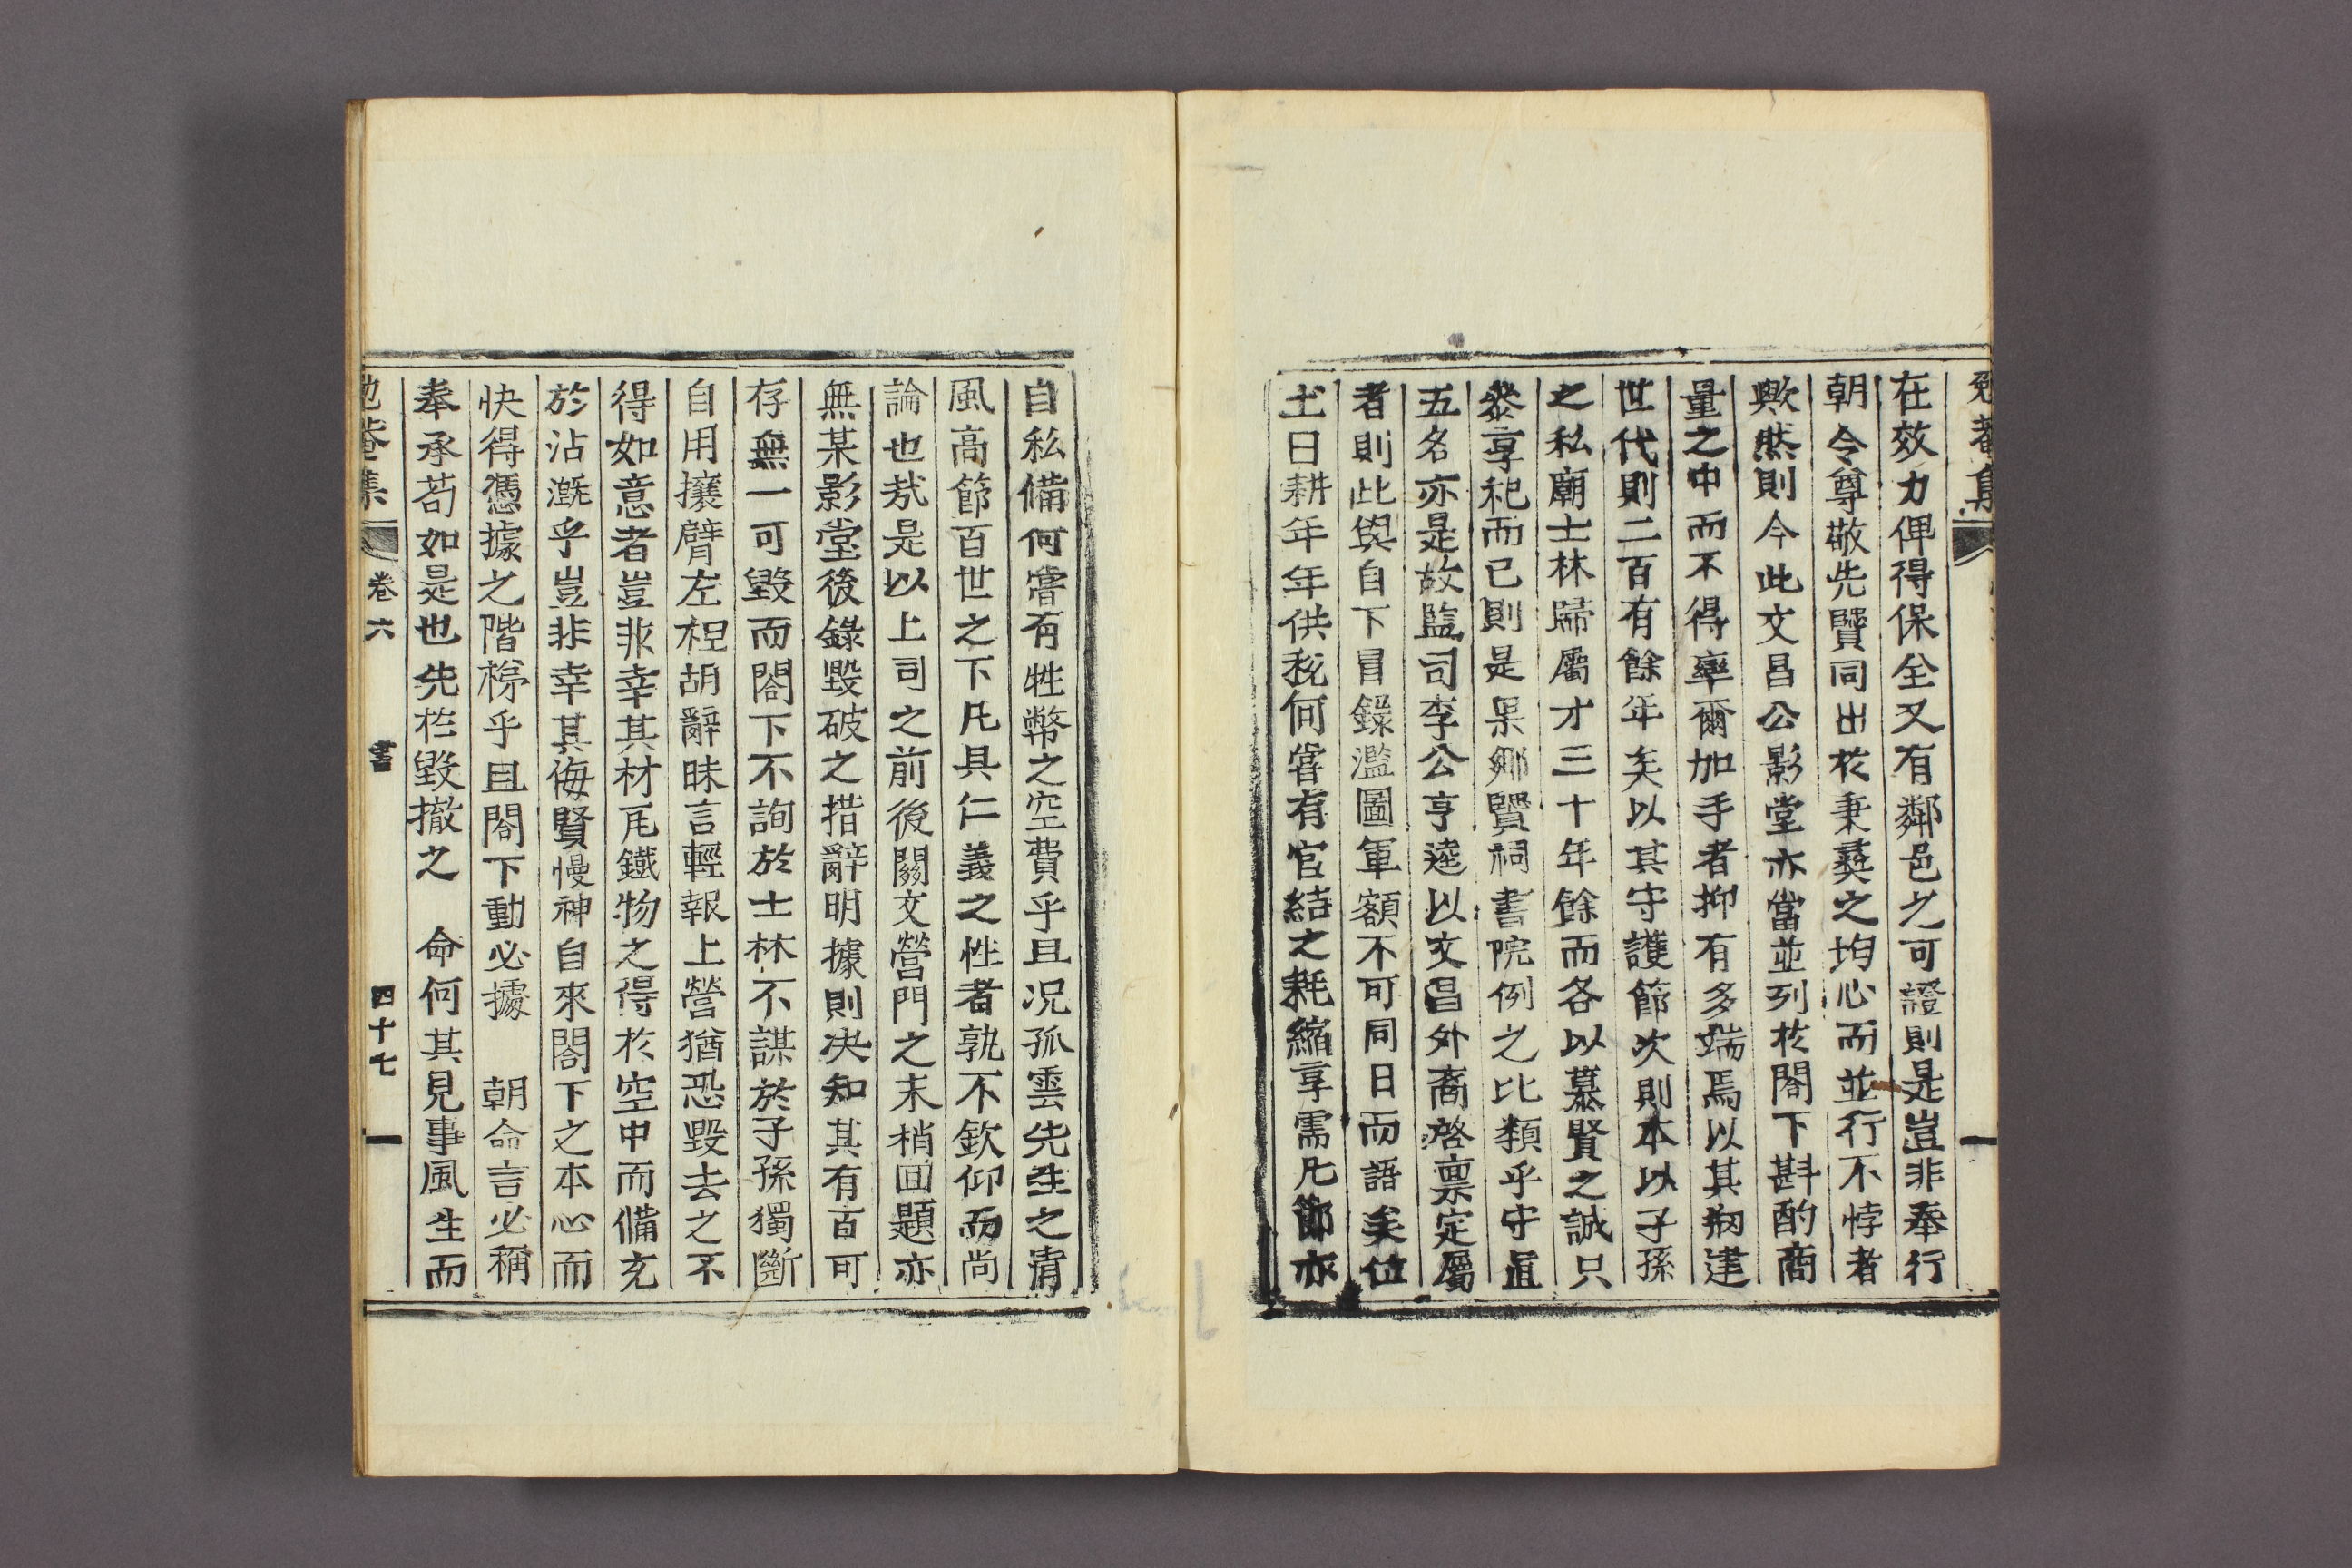 菴集
在效力俾得保全又有鄰邑之可證則是豈非奉行
朝令尊敬先贒同出於秉彛之均心而並行不悖者
歟然則今此文昌公影堂亦當並列於閤下斟酌商
量之中而不得率爾加手者抑有多端焉以其刱建
世代則二百有餘年矣以其守護節次則本以子孫
之私廟士林歸屬才三十年餘而各以慕賢之誠只
叅享祀而已則是果鄕賢祠書院例之比類乎守直
五名亦是故監司李公亨逵以文昌外裔啓禀定屬
者則此與自下冒錄濫圖軍額不可同日而語矣位
土日耕年年供稅何嘗有官結之耗縮享需凡節亦
自私備何嘗有牲幣之空費乎且况孤雲先生之清
風高節百世之下凡具仁義之性者孰不欽仰而尚
論也㦲是以上司之前後關文營門之末梢回題亦
無某影堂後錄毀破之措辭明據則决知其有百可
存無一可毀而閤下不詢於士林不謀於子孫獨斷
自用攘臂左袒胡辭昧言輕報上營猶恐毀去之不
得如意者豈非幸其材瓦鐵物之得於空中而備充
於沾漑乎豈非幸其侮賢慢神自來閤下之本心而
快得憑據之階梯乎且閤下動必據 朝命言必稱
奉承苟如是也先於毀撤之 命何其見事風生而
菴集 卷六 書 四十七